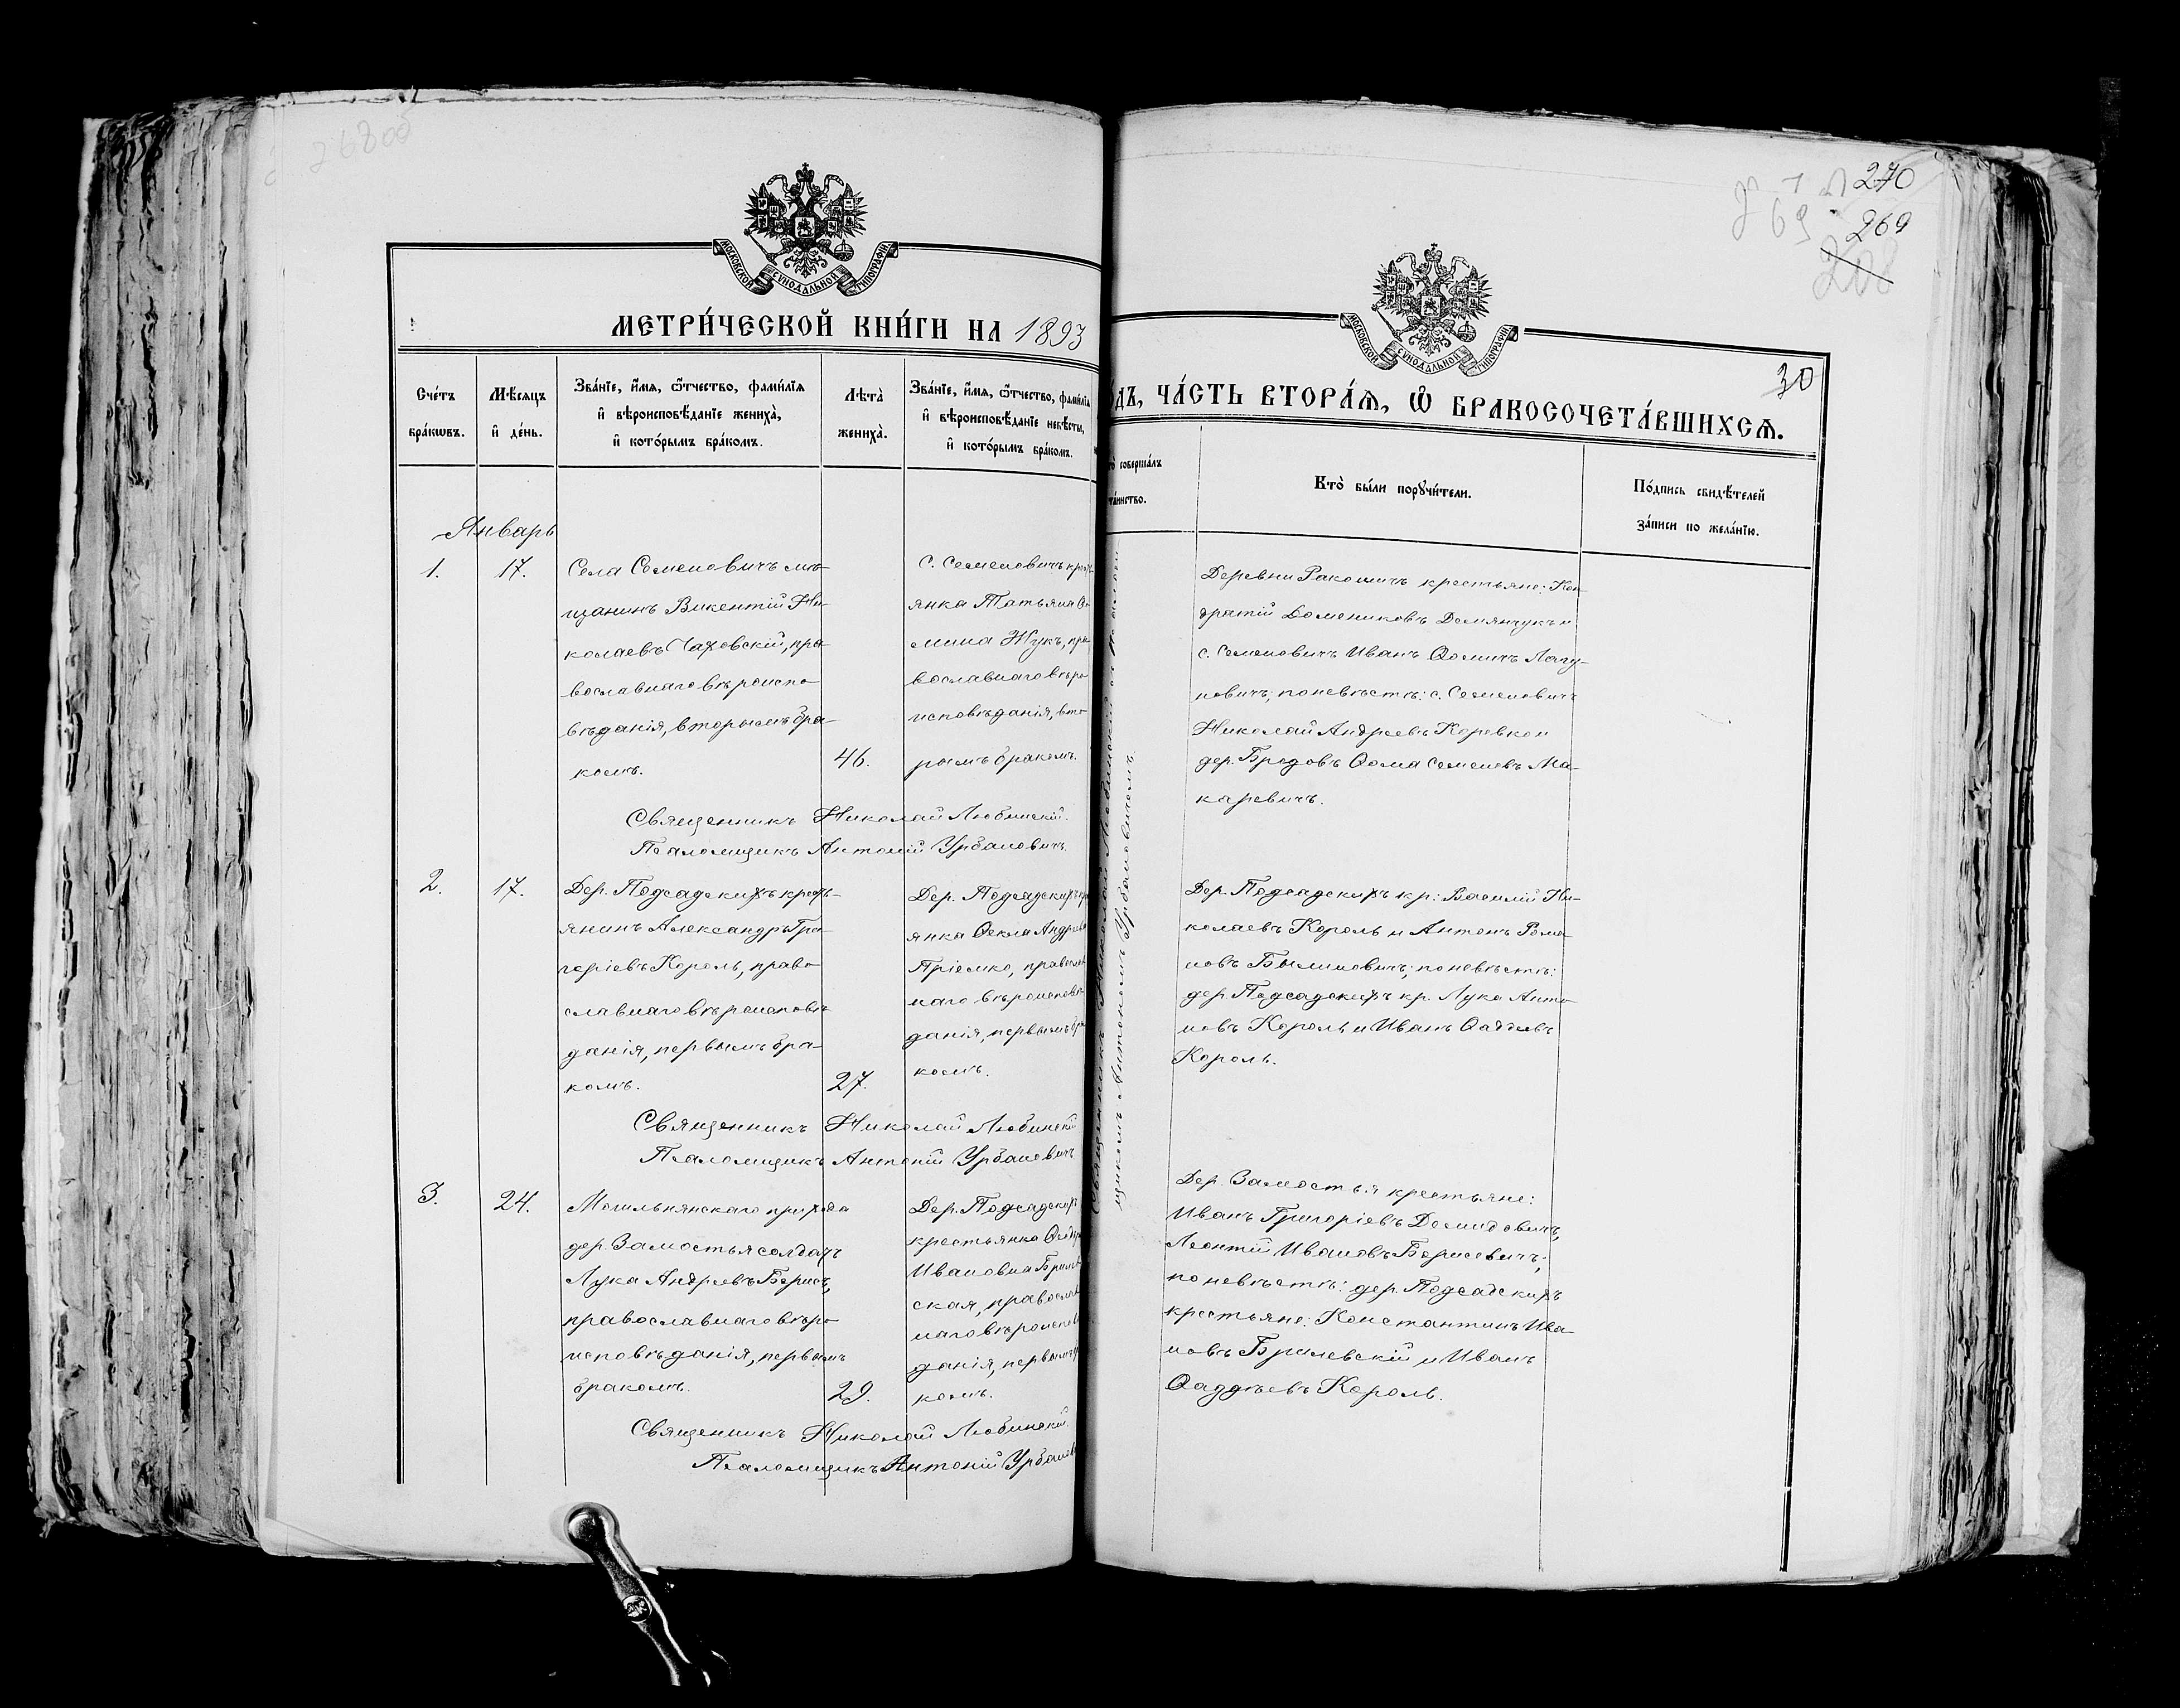 270
269
30
МОСКОВСКОЙ СѴНОДАЛЬНОЙ ТИПОГРАФІИ
МЕТРИ́ЧЕСКОЙ КНИ́ГИ НА 1893
Сче́тъ бра́кѡвъ.
Мѣ́сяцъ и҆ де́нь.
Зва́нїе, и҆́мя, ѻ҆́тчество, фами́лїя
и҆ вѣроисповѣ́данїе жениха̀,
и҆ кото́рымъ бра́комъ.
Лѣта̀ жениха̀.
Зва́нїе, и҆́мя, ѻ҆́тчество, фами́лїя
и҆ вѣроисповѣ́данїе невѣ́сты,
и҆ кото́рымъ бра́комъ.
Январь
1.
17.
Села Семеновичъ мѣ-
щанинъ Викентій Ни-
колаевъ Чаховскій, пра-
вославнаго вѣроиспо-
вѣданія, вторымъ бра-
комъ.
46.
С. Семеновичъ крест-
янка Татьяна Ѳо-
мина Жукъ, пра-
вославнаго вѣро-
исповѣданія, вто-
рымъ бракомъ.
Священникъ Николай Любинскій.
Псаломщикъ Антоній Урбановичъ.
2.
17.
Дер. Подсадскихъ кресть-
янинъ Александръ Гри-
горіевъ Король, право-
славнаго вѣроисповѣ-
данія, первымъ бра-
комъ.
27.
Дер. Подсадскихъ кр
янка Ѳекла Андреева
Пріемко, православ
наго вѣроисповѣ-
данія, первымъ бра
комъ.
Священникъ Николай Любинскій
Псаломщикъ Антоній Урбановичъ
3.
24.
Могильнянскаго прихода
дер. Замостья солдатъ
Лука Андреевъ Борисъ,
православнаго вѣро-
исповѣданія, первымъ
бракомъ.
29.
Дер. Подсадскихъ
крестьянка
Ивановна
ская, православ
наго вѣроисповѣ
данія, первымъ
комъ.
Священникъ Николай Любинскій.
Псаломщикъ Антоній Урбанов
МОСКОВСКОЙ СѴНОДАЛЬНОЙ ТИПОГРАФІИ
ДЪ, ЧА́СТЬ ВТОРА́Я, Ѡ҆ БРАКОСОЧЕТА́ВШИХСЯ.
соверша́лъ
та́инство.
Кто̀ бы́ли порꙋчи́тели.
По́дпись свидѣ́телей
за́писи по жела́нїю.
щикомъ Антоніемъ Урбановичемъ.
Деревни Ракошичъ крестьяне: Кон-
дратій Домениковъ Демянчукъ и
с. Семеновичъ Иванъ Ѳоминъ Лагу-
новичъ; по невѣстѣ: с. Семеновичъ
Николай Андреевъ Коревко и
дер. Бродовъ Ѳома Семеновъ Ма-
каревичъ.
Дер. Подсадскихъ кр: Василій Ни-
колаевъ Король и Антонъ Рома-
новъ Былиновичъ; по невѣстѣ:
дер. Подсадскихъ кр. Лука Анто-
новъ Король и Иванъ Ѳаддеевъ
Король.
Дер. Замостья крестьяне:
Иванъ Григоріевъ Демидовичъ,
Леонтій Ивановъ Борисевичъ;
по невѣстѣ: дер. Подсадскихъ
крестьяне: Константинъ Ива-
новъ Брилевскій и Иванъ
Ѳаддѣевъ Король.